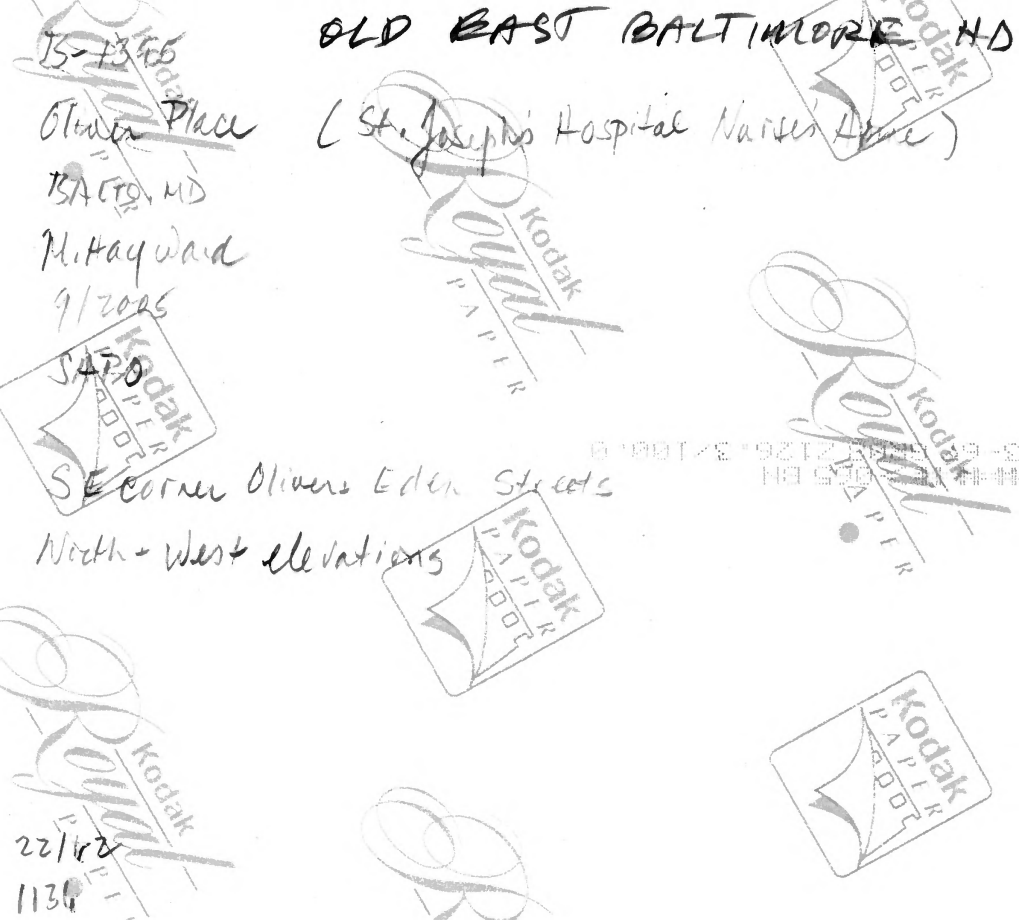 OLD EAST BALTIMORE HD
Oliver Place (St. Joseph's Hospital Nurses Home)
BALTO, MD
M. Hayward
9/2005
SE corner Oliver + Eden Streets
North + West elevations
Kodak
Royal
PAPER